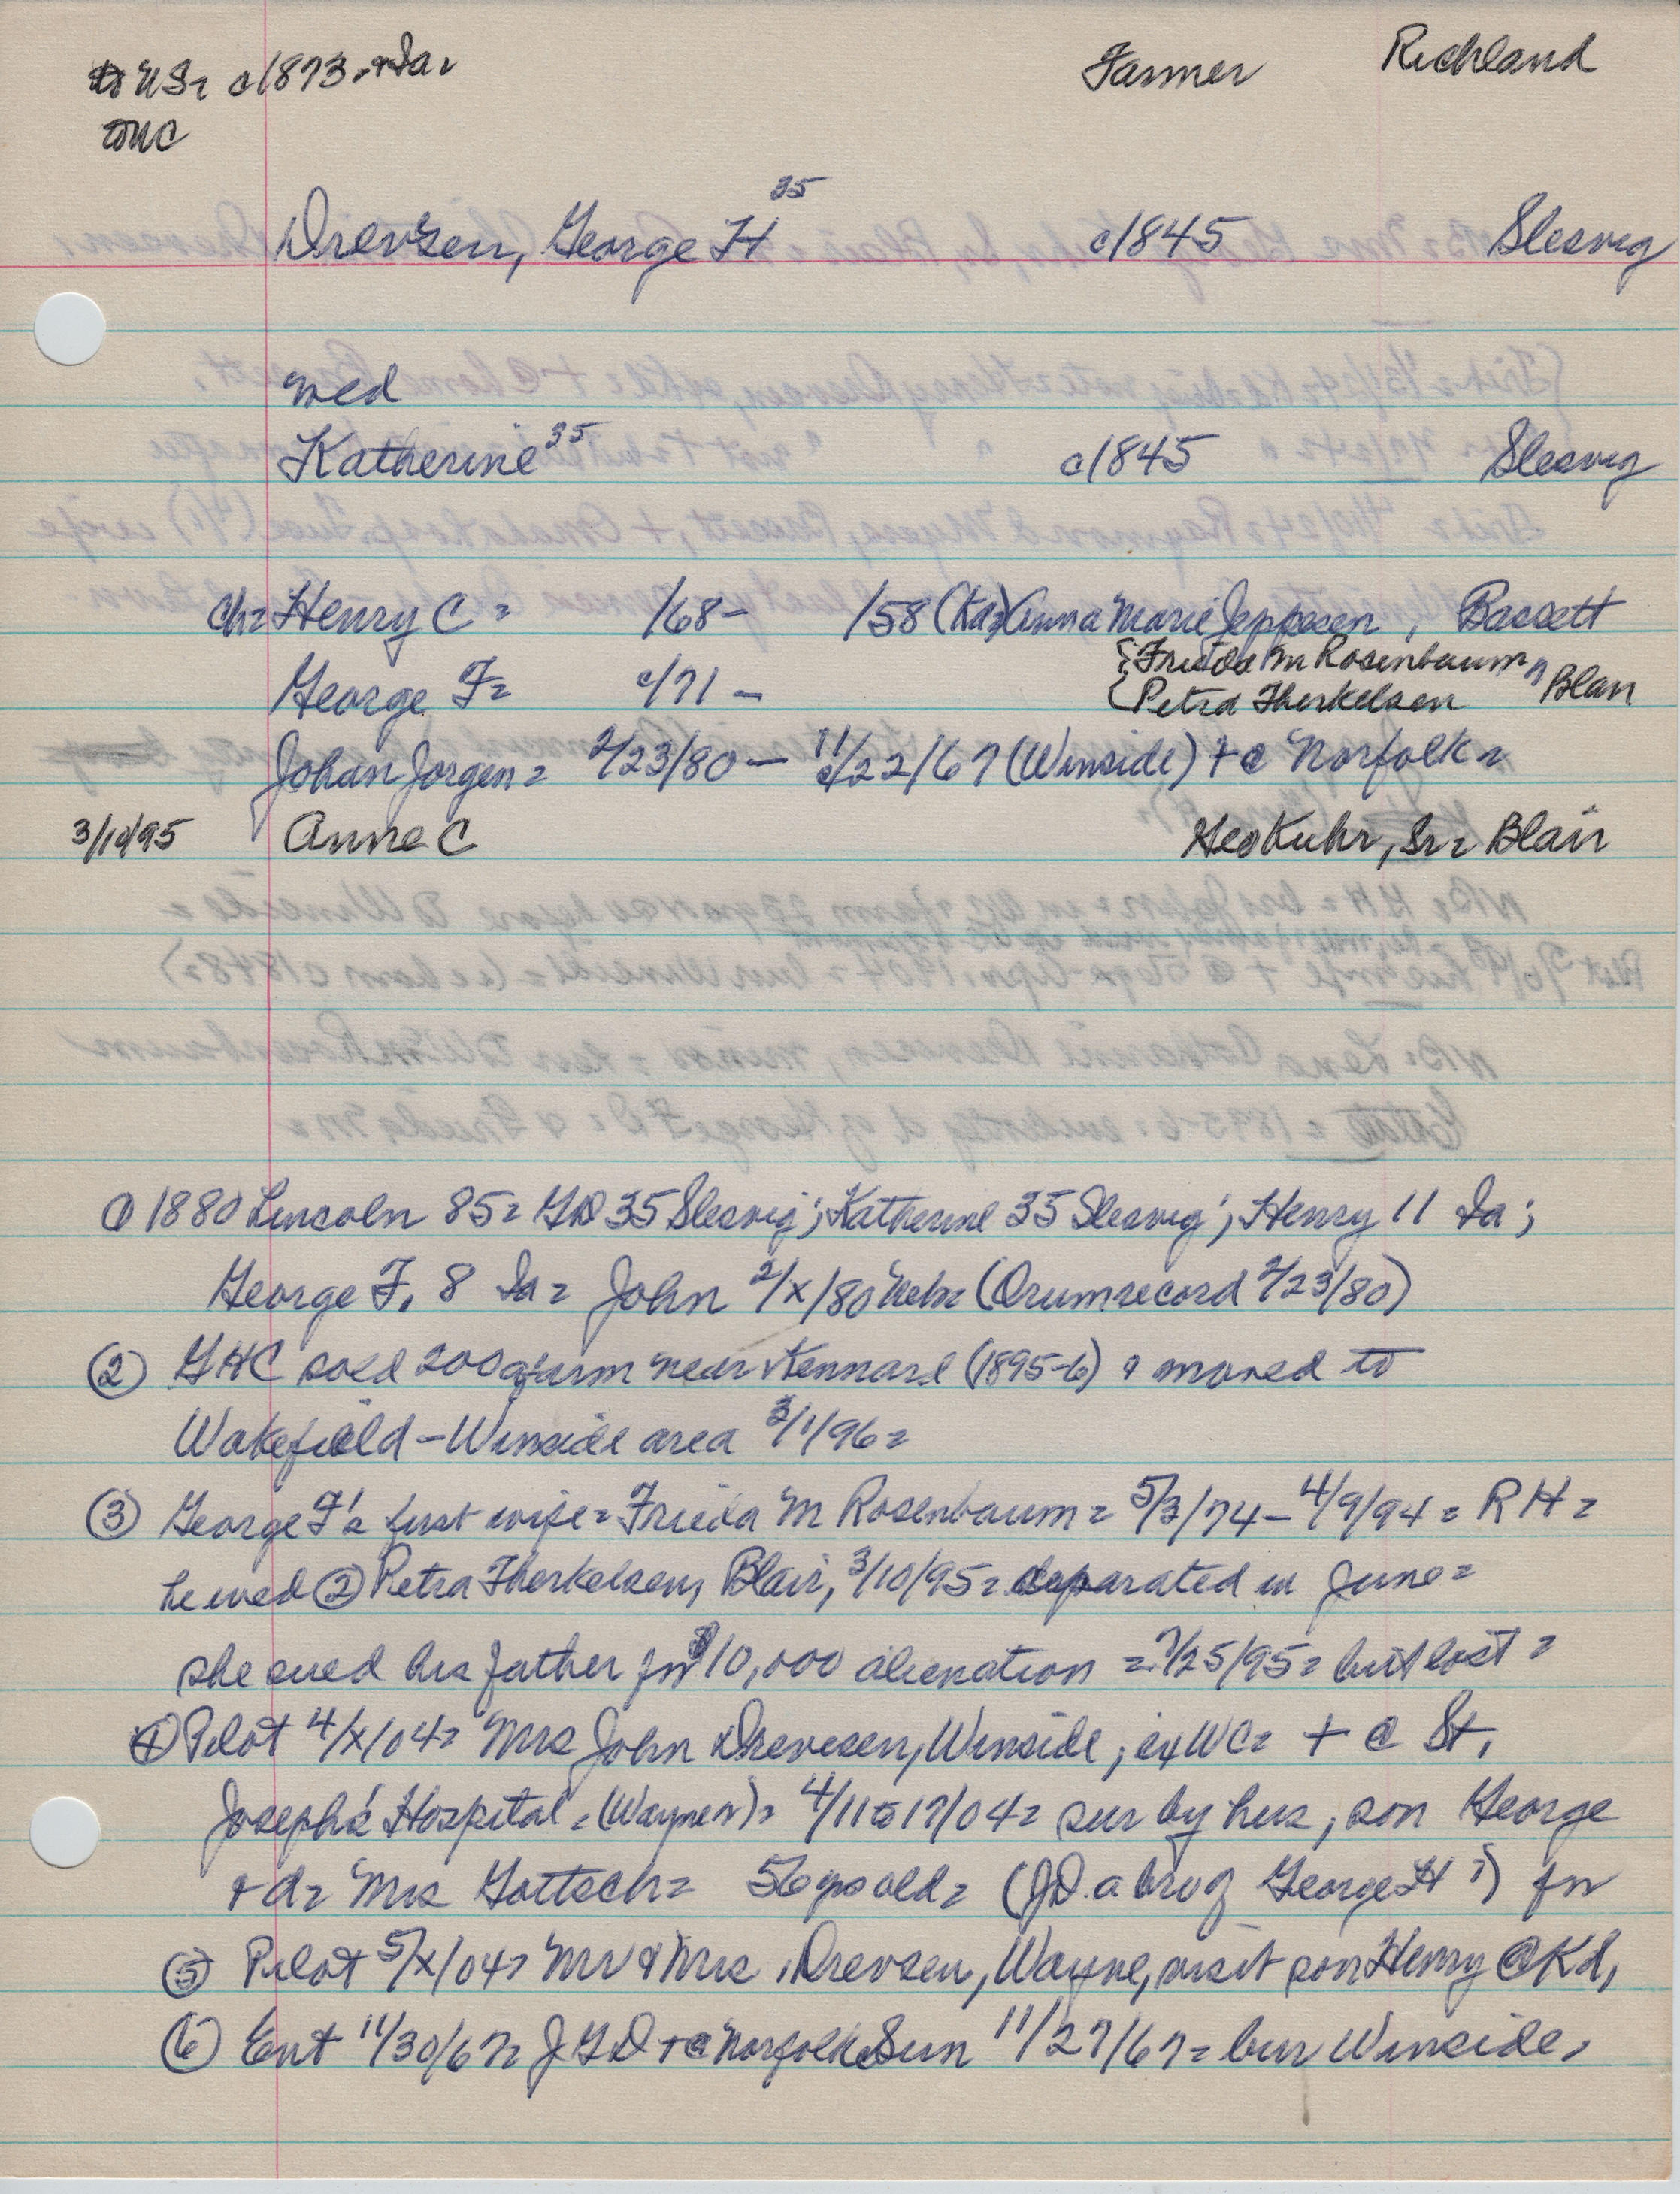 to US= c1873. +Ia=
to WC
Farmer Richland
Drevsen, George H 35 c1845 Slesvig
wed
Katherine 35 c1845 Slesvig
ch= Henry C = /68- /58 (Kd) Anna Marie Jeppesen, Bassett
George F= c/71 - {Frieda M Rosenbaum
{Petra Therkelsen, Blair
Johan Jorgen= 2/23/80 - 11/22/67 (Winside) + @ Norfolk=
3/10/95 Anne C Geo Kuhr, Sr= Blair
① 1880 Lincoln 85= GD 35 Slesvig; Katherine 35 Slesvig; Henry 11 Ia;
George F. 8 Ia= John 2/x/80 Nebr (Orum record 2/23/80)
② GHC sold 200a farm near Kennard (1895-6) & moved to
Wakefield-Winside area 3/1/96=
③ George F's first wife= Frieda M Rosenbaum= 5/3/74-4/9/94= RH=
he wed ② Petra Therkelsen, Blair, 3/10/95= separated in June=
she sued his father for $10,000 alienation = 7/25/95= but lost=
④ Pilot 4/x/04= Mrs John Drevesen, Winside; ex WC= + @ St.
Joseph's Hospital = 4/11 to 17/04= sur by hus, son George
+ d= Mrs Gottsch= 56 yrs old= (JD. a bro of George H?)
⑤ Pilot 5/x/04= Mr & Mrs. Drevsen, Wayne, visit son Henry @ Kd,
⑥ Ent 11/30/67= JGD + @ Norfolk Sun 11/27/67= bur Winside,